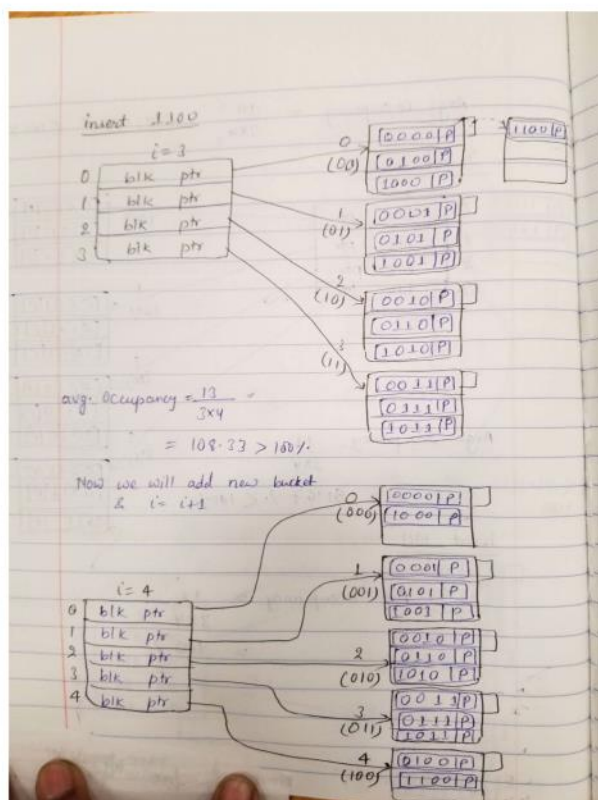 insert 1100
i = 3
0 blk ptr
1 blk ptr
2 blk ptr
3 blk ptr
0
(00)
0000 P
0100 P
1000 P
1100 P
1
(01)
0001 P
0101 P
1001 P
2
(10)
0010 P
0110 P
1010 P
3
(11)
0011 P
0111 P
1011 P
avg. Occupancy = 13
3x4
= 108.33 > 100%.
Now we will add new bucket
& i = i+1
i = 4
0 blk ptr
1 blk ptr
2 blk ptr
3 blk ptr
4 blk ptr
0
(000)
0000 P
1000 P
1
(001)
0001 P
0101 P
1001 P
2
(010)
0010 P
0110 P
1010 P
3
(011)
0011 P
0111 P
1011 P
4
(100)
0100 P
1100 P